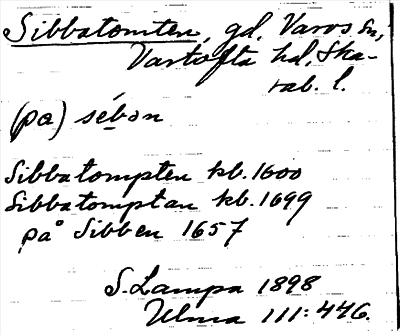 Sibbatomten, gd, Varvs sn,
Vartofta hd, Ska-
rab. l.
(pa) sében
Sibbatompten kb. 1600
Sibbatomptan kb. 1699
på Sibben 1657
S. Lampa 1898
Ulma 111:446.